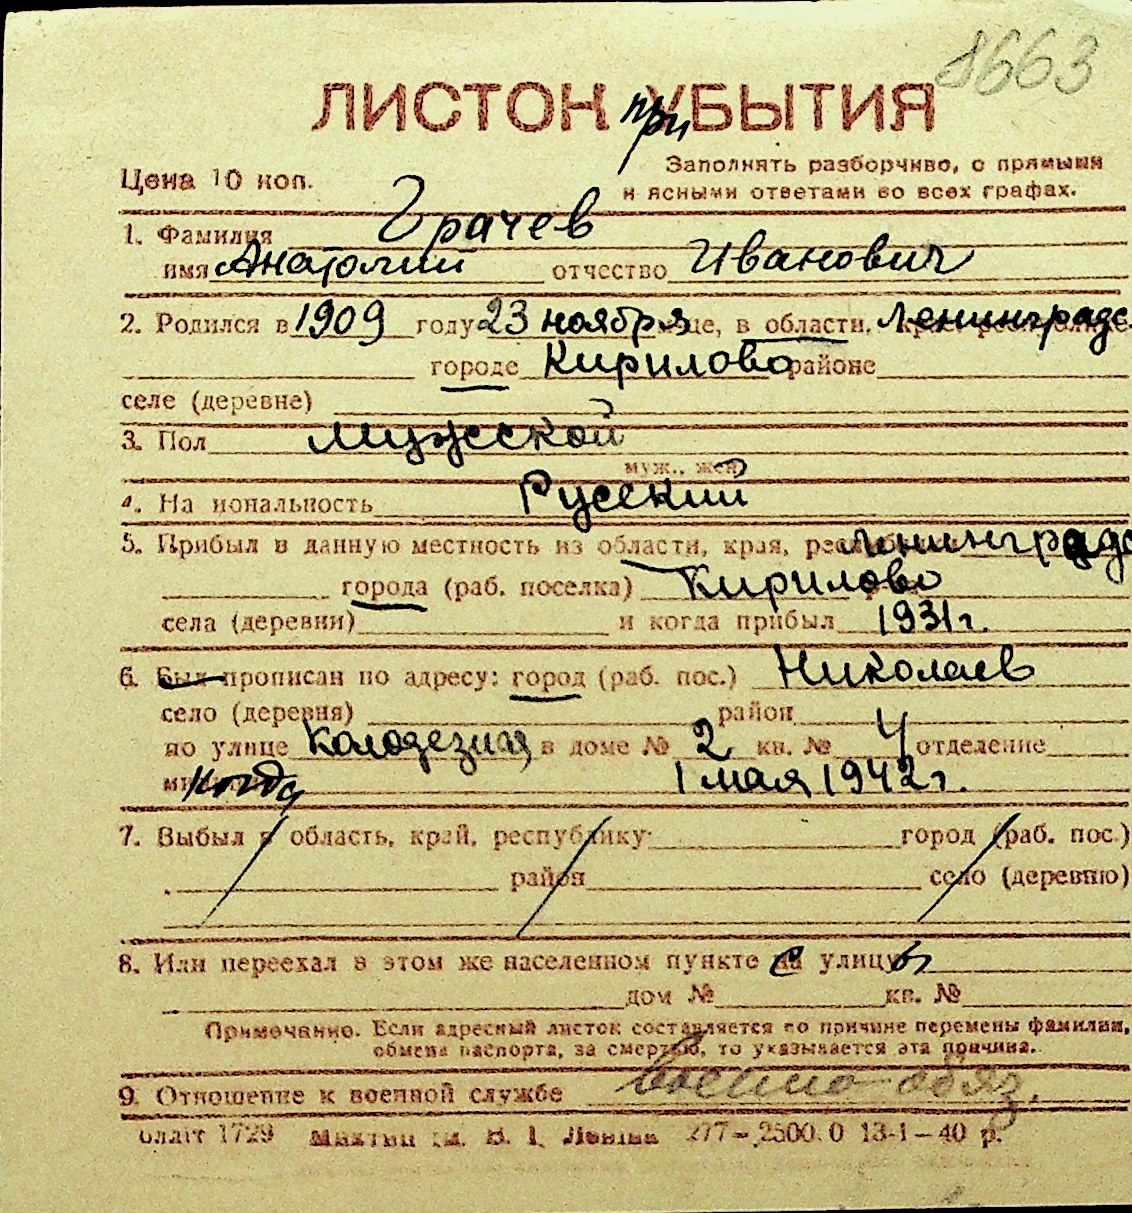 8663
ЛИСТОК при УБЫТИЯ
Заполнять разборчиво, с прямыми
Цена 10 коп.
и ясными ответами во всех графах.
1. Фамилия Грачев
имя Анатолий отчество Иванович
2. Родился в 1909 году 23 ноября м-це, в области, Ленинградс
городе Кирилово районе
селе (деревне)
3. Пол мужской
муж., жен.
4. На иональность Русский
5. Прибыл в данную местность из области, края, Ленинградс
города (раб. поселка) Кирилово
села (деревни) и когда прибыл 1931 г.
6. Был прописан по адресу: город (раб. пос.) Николаев
село (деревня) район
по улице Колодезная в доме № 2 кв. № 4 отделение
когда 1 мая 1942 г.
7. Выбыл в область, край, республику город (раб. пос.)
район село (деревню)
8. Или переехал в этом же населенном пункте с улицы
дом № кв. №
Примечание. Если адресный листок составляется по причине перемены фамилии,
обмена паспорта, за смертью, то указывается эта причина.
9. Отношение к военной службе Военно-обяз.
1729 В. І. Леніна 277 – 2500.0 13-1 – 40 р.